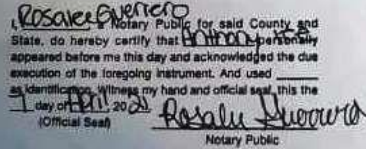 I, Rosalee Guerrero Notary Public for said County and
State, do hereby certify that Anthony personally
appeared before me this day and acknowledged the due
execution of the foregoing instrument. And used ______
as identification. Witness my hand and official seal, this the
1 day of April 2021
Rosalee Guerrero
(Official Seal)
Notary Public